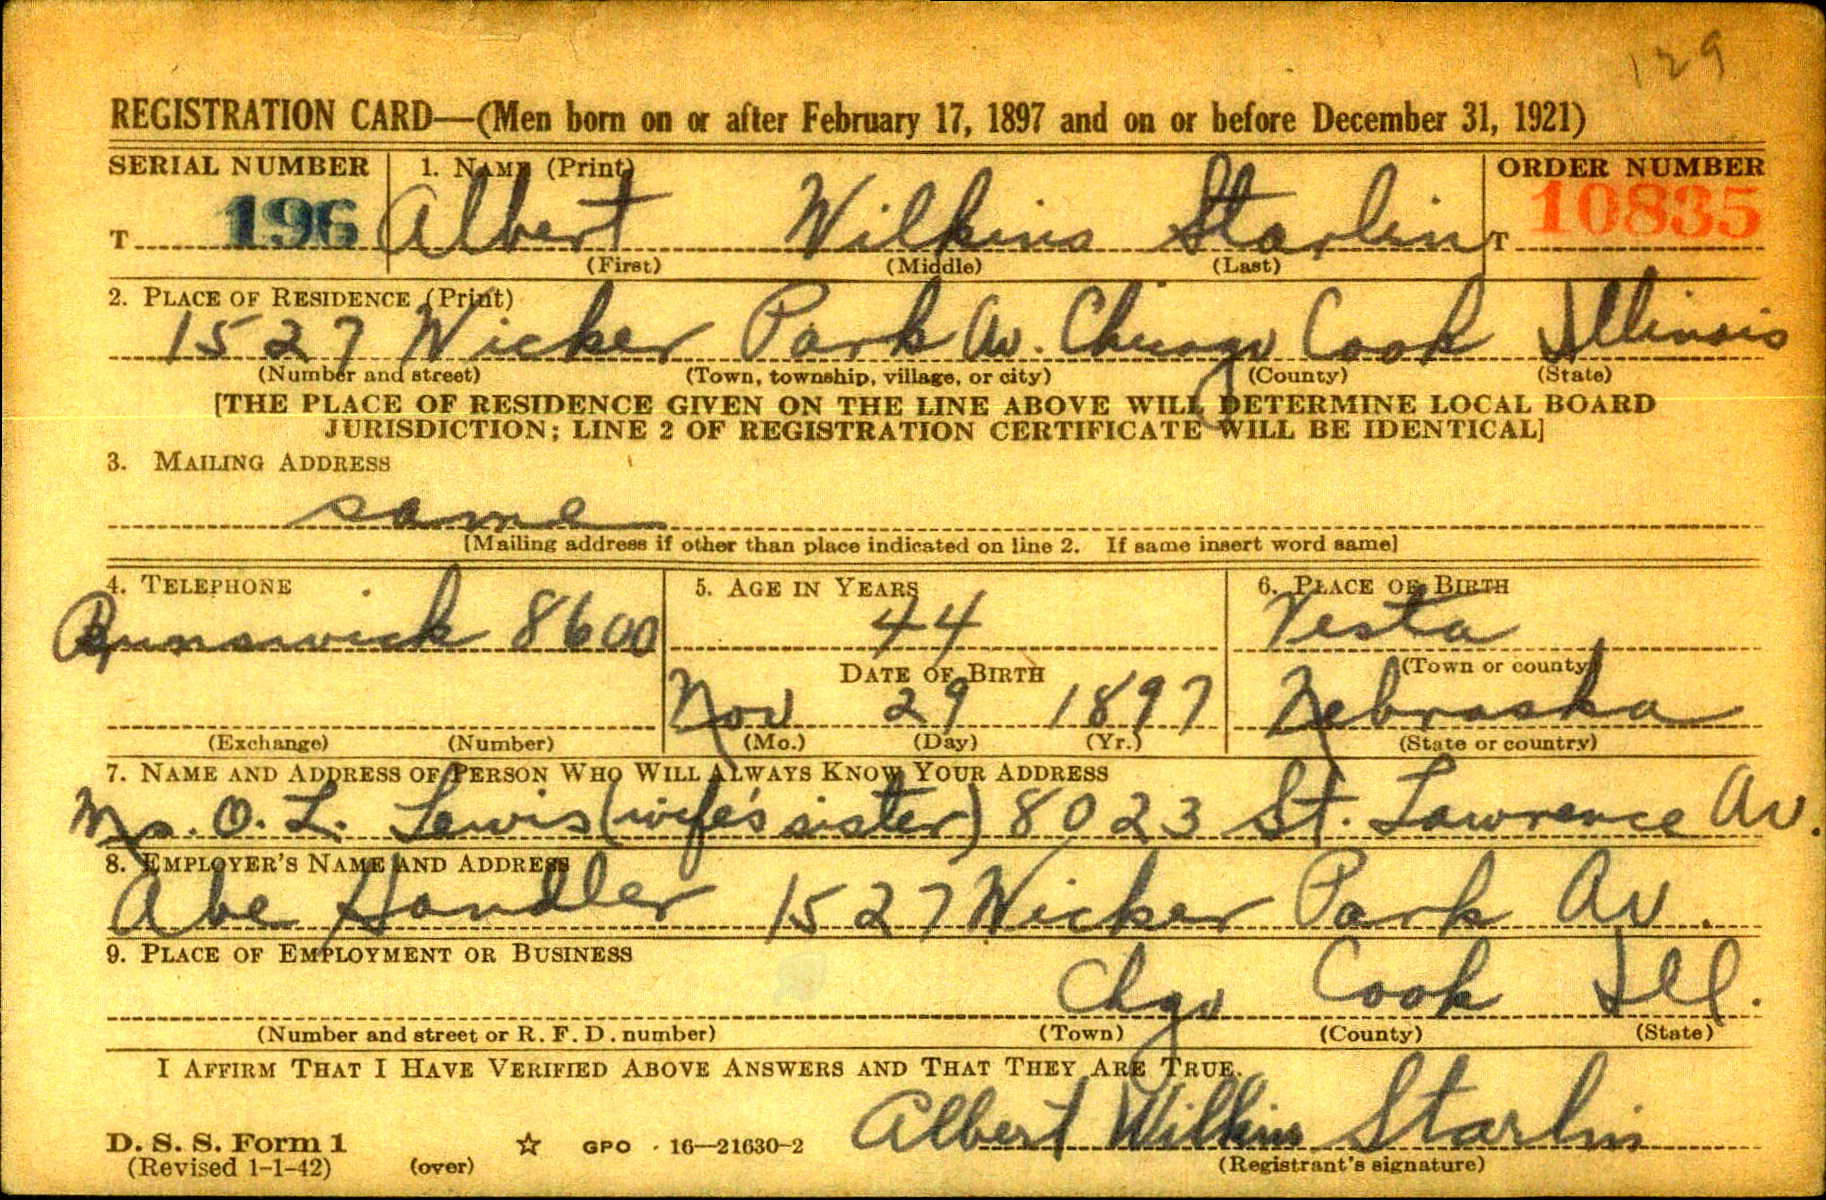 129
REGISTRATION CARD—(Men born on or after February 17, 1897 and on or before December 31, 1921)
SERIAL NUMBER 1. NAME (Print) ORDER NUMBER
T 196 Albert Wilkins Starlin T 10835
(First) (Middle) (Last)
2. PLACE OF RESIDENCE (Print)
1527 Wicker Park Av. Chicago Cook Illinois
(Number and street) (Town, township, village, or city) (County) (State)
[THE PLACE OF RESIDENCE GIVEN ON THE LINE ABOVE WILL DETERMINE LOCAL BOARD
JURISDICTION; LINE 2 OF REGISTRATION CERTIFICATE WILL BE IDENTICAL]
3. MAILING ADDRESS
same
[Mailing address if other than place indicated on line 2. If same insert word same]
4. TELEPHONE 5. AGE IN YEARS 6. PLACE OF BIRTH
Brunswick 8600 44 Vesta
DATE OF BIRTH (Town or county)
Nov 29 1897 Nebraska
(Exchange) (Number) (Mo.) (Day) (Yr.) (State or country)
7. NAME AND ADDRESS OF PERSON WHO WILL ALWAYS KNOW YOUR ADDRESS
Mrs. O. L. Lewis (wife's sister) 8023 St. Lawrence Av.
8. EMPLOYER'S NAME AND ADDRESS
Abe Handler 1527 Wicker Park Av.
9. PLACE OF EMPLOYMENT OR BUSINESS
Chgo Cook Ill.
(Number and street or R. F. D. number) (Town) (County) (State)
I AFFIRM THAT I HAVE VERIFIED ABOVE ANSWERS AND THAT THEY ARE TRUE.
Albert Wilkins Starlin
D. S. S. Form 1 ☆ GPO 16—21630-2
(Revised 1-1-42) (over) (Registrant's signature)